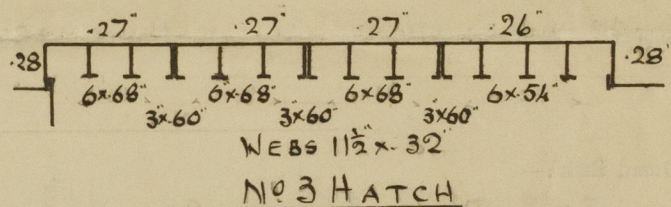 ·27" ·27" ·27" ·26"
·28 ·28"
6"×·68" 6"×·68" 6"×68" 6"×·54"
3"×·60" 3"×60" 3"×60"
WEBS 11½"×·32"
No 3 HATCH